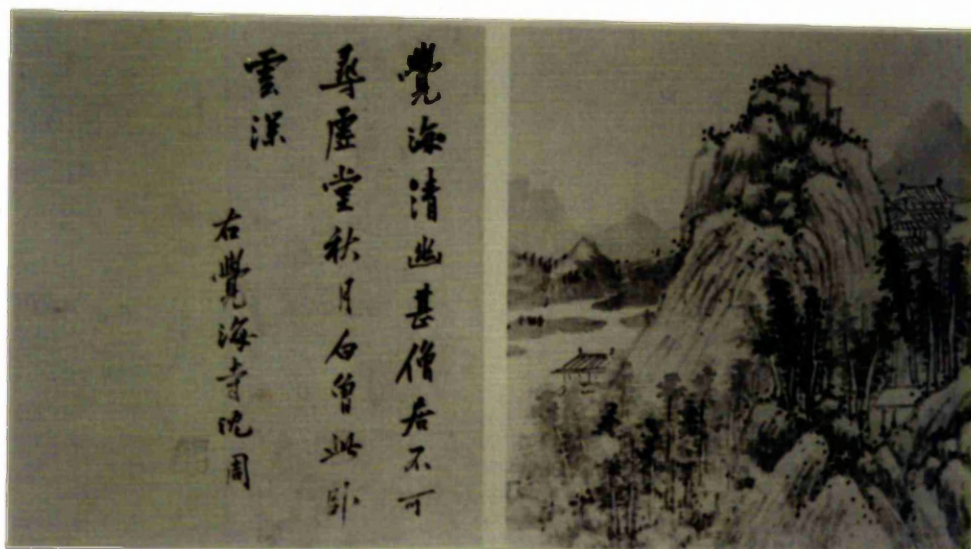 覺海清幽甚僧居不可
尋虛堂秋月白曾此卧
雲深
右覺海寺沈周